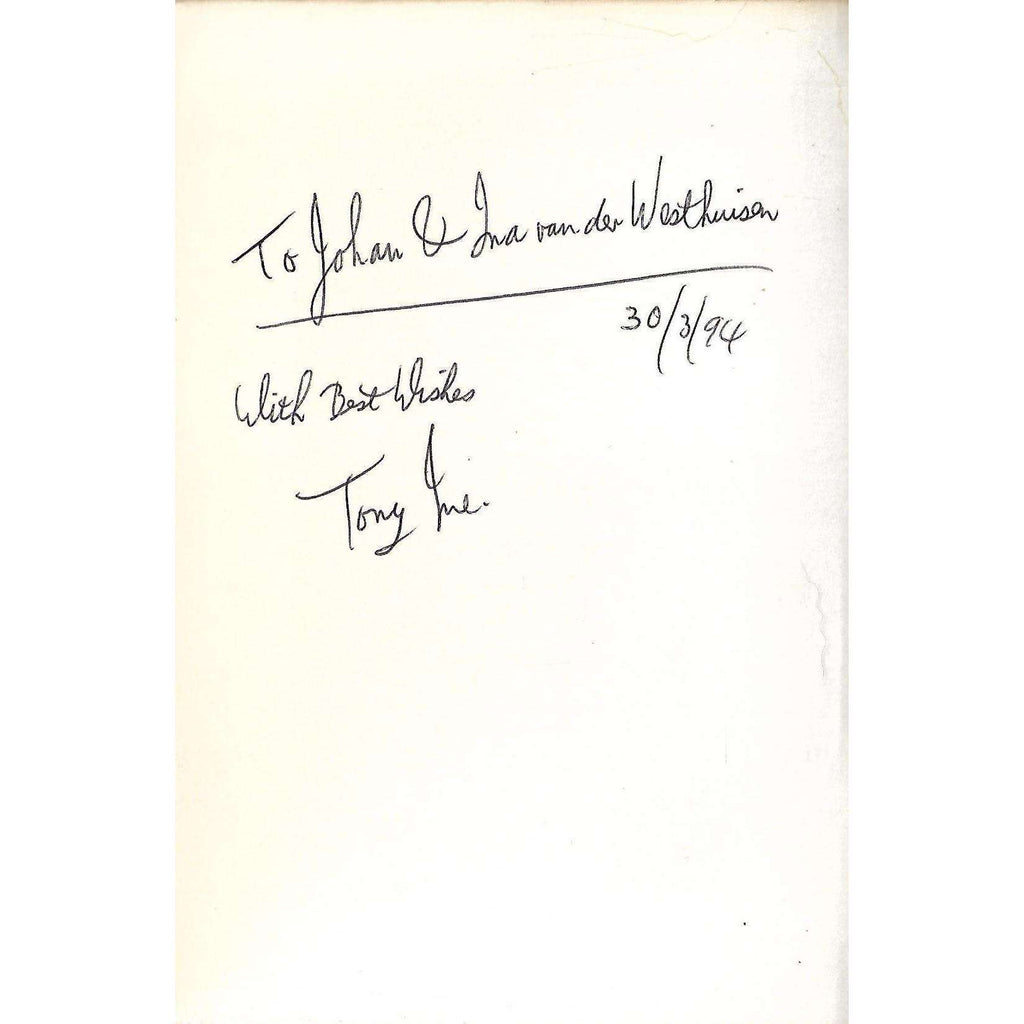 To Johan & Ina van der Westhuisen
30/3/94
With Best Wishes
Tony